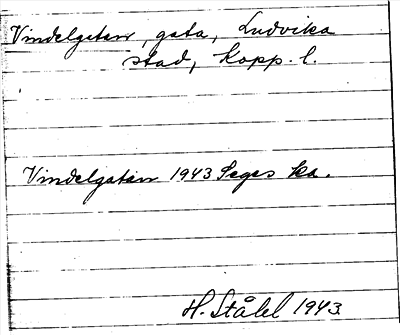 Vindelgatan, gata, Ludvika
stad, Kopp. l.
Vindelgatan 1943 Seges ka.
H. Ståhl 1943